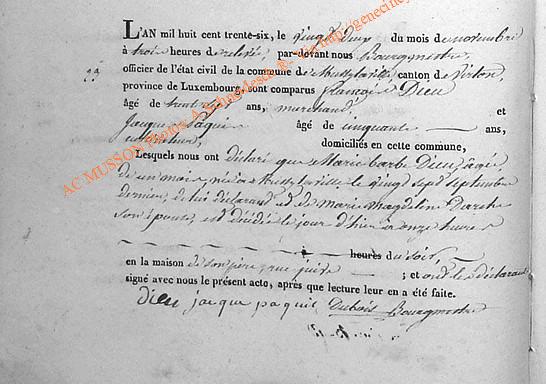 L'AN mil huit cent trente-six, le vingt deux du mois de novembre
à trois heures de relevé, par-devant nous Bourgmestre,
officier de l'état civil de la commune de Mussy la ville, canton de Virton,
23
province de Luxembourg, sont comparus françois Dieu
âgé de trente ans, marchand et
Jacque Paquit âgé de cinquante ans,
domiciliés en cette commune,
Lesquels nous ont déclaré que Marie barbe Dieu, âgée
de un mois, née à Mussy la ville le vingt sept septembre
dernier, de lui déclarant et de marie magdelin
son épouse, est décédée le jour d'hier à onze heures
heures du soir,
en la maison de son père, rue ; et ont les déclarants
signé avec nous le présent acte, après que lecture leur en a été faite.
dieu jacque paquit Dubois Bourgmestre
AC MUSSON Photos A Schol-Mesch R- via http://geneciney